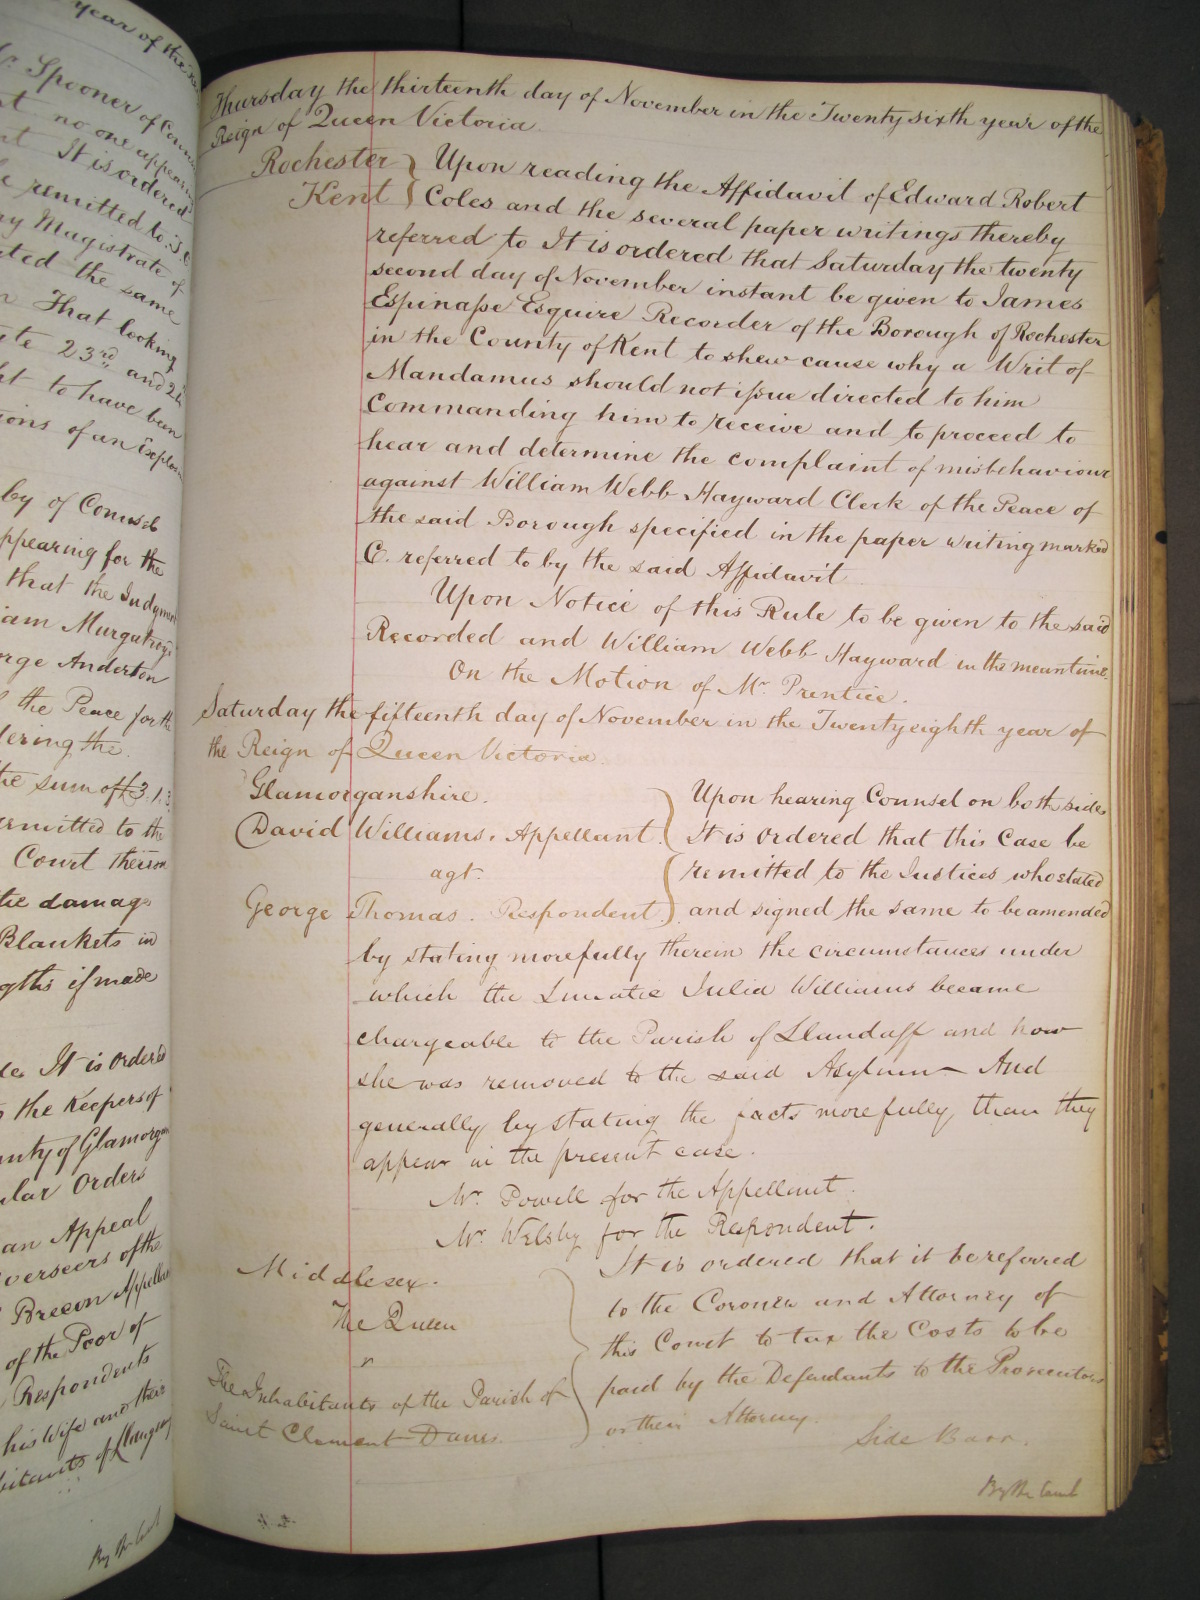 year of the
Spooner of Couns
no one appearing
It is ordered
remitted to
ny Magistrate of
ated the same
That looking
23rd and 24
ht to have been
ions of an Explos
by of Counsel
appearing for the
that the Judgment
iam Murgatroyd
orge Anderton
the Peace for the
dering the
the sum of £3.1.3
ermitted to the
Court thereon
the damage
Blankets in
gths if made
It is ordered
to the Keepers of
unty of Glamorgan
ular Orders
an Appeal
Overseers of the
Brecon Appellan
of the Poor of
Respondents
his Wife and their
bitants of
By the Court
Thursday the thirteenth day of November in the Twenty sixth year of the
Reign of Queen Victoria.
Rochester } Upon reading the Affidavit of Edward Robert
Kent } Coles and the several paper writings thereby
referred to It is ordered that Saturday the twenty
second day of November instant be given to James
Espinaſse Esquire Recorder of the Borough of Rochester
in the County of Kent to shew cause why a Writ of
Mandamus should not iſsue directed to him
Commanding him to receive and to proceed to
hear and determine the complaint of misbehaviour
against William Webb Hayward Clerk of the Peace of
the said Borough specified in the paper writing marked
C. referred to by the said Affidavit
Upon Notice of this Rule to be given to the said
Recorded and William Webb Hayward in the meantime.
On the Motion of Mr. Prentice.
Saturday the fifteenth day of November in the Twenty eighth year of
the Reign of Queen Victoria.
Glamorganshire. } Upon hearing Counsel on both sides
David Williams. Appellant. } It is ordered that this Case be
agt. } remitted to the Justices who stated
George Thomas. Respondent. } and signed the same to be amended
by stating more fully therein the circumstances under
which the Lunatic Julia Williams became
chargeable to the Parish of Llandaff and how
she was removed to the said Asylum – And
generally by stating the facts more fully than they
appear in the present case.
Mr. Powell for the Appellant.
Mr. Welsby for the Respondent.
Middlesex. } It is ordered that it be referred
The Queen } to the Coroner and Attorney of
v } this Court to tax the Costs to be
The Inhabitants of the Parish of } paid by the Defendants to the Prosecutors
Saint Clement Danes. } or their Attorney.
Side Barr.
By the Court